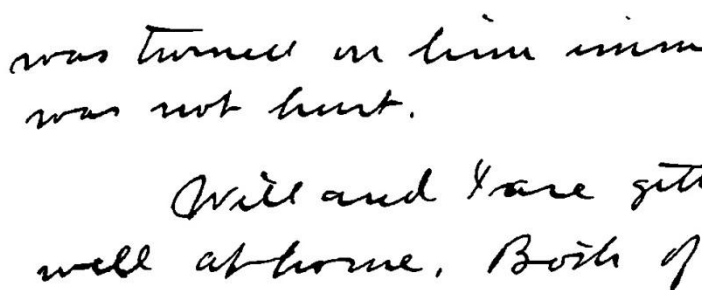 was turned on him imm
was not hurt.
Will and I are gett
well at home. Both of